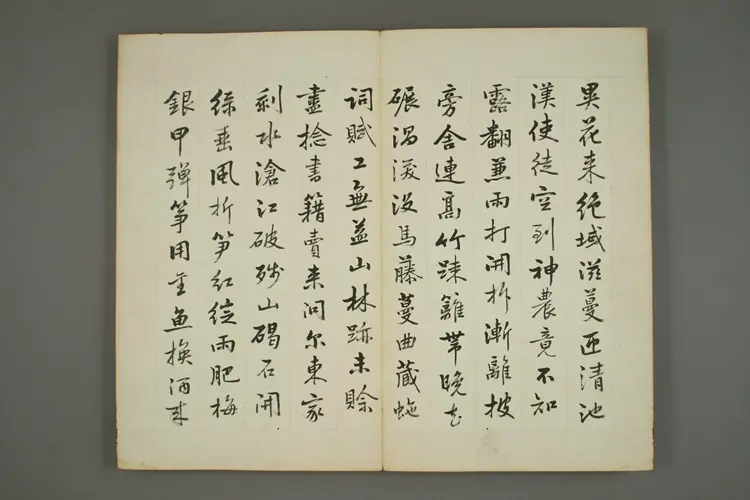 異花来絕域滋蔓匝清池
漢使徒空到神農竟不知
露翻兼雨打開拆漸離披
旁舍連高竹踈籬帶晚花
碾渦深沒馬藤蔓曲藏虵
詞賦工無益山林跡未賒
盡捻書籍賣来問尔東家
剩水滄江破殘山碣石開
綠垂風折笋紅綻雨肥梅
銀甲彈箏用金魚換酒来